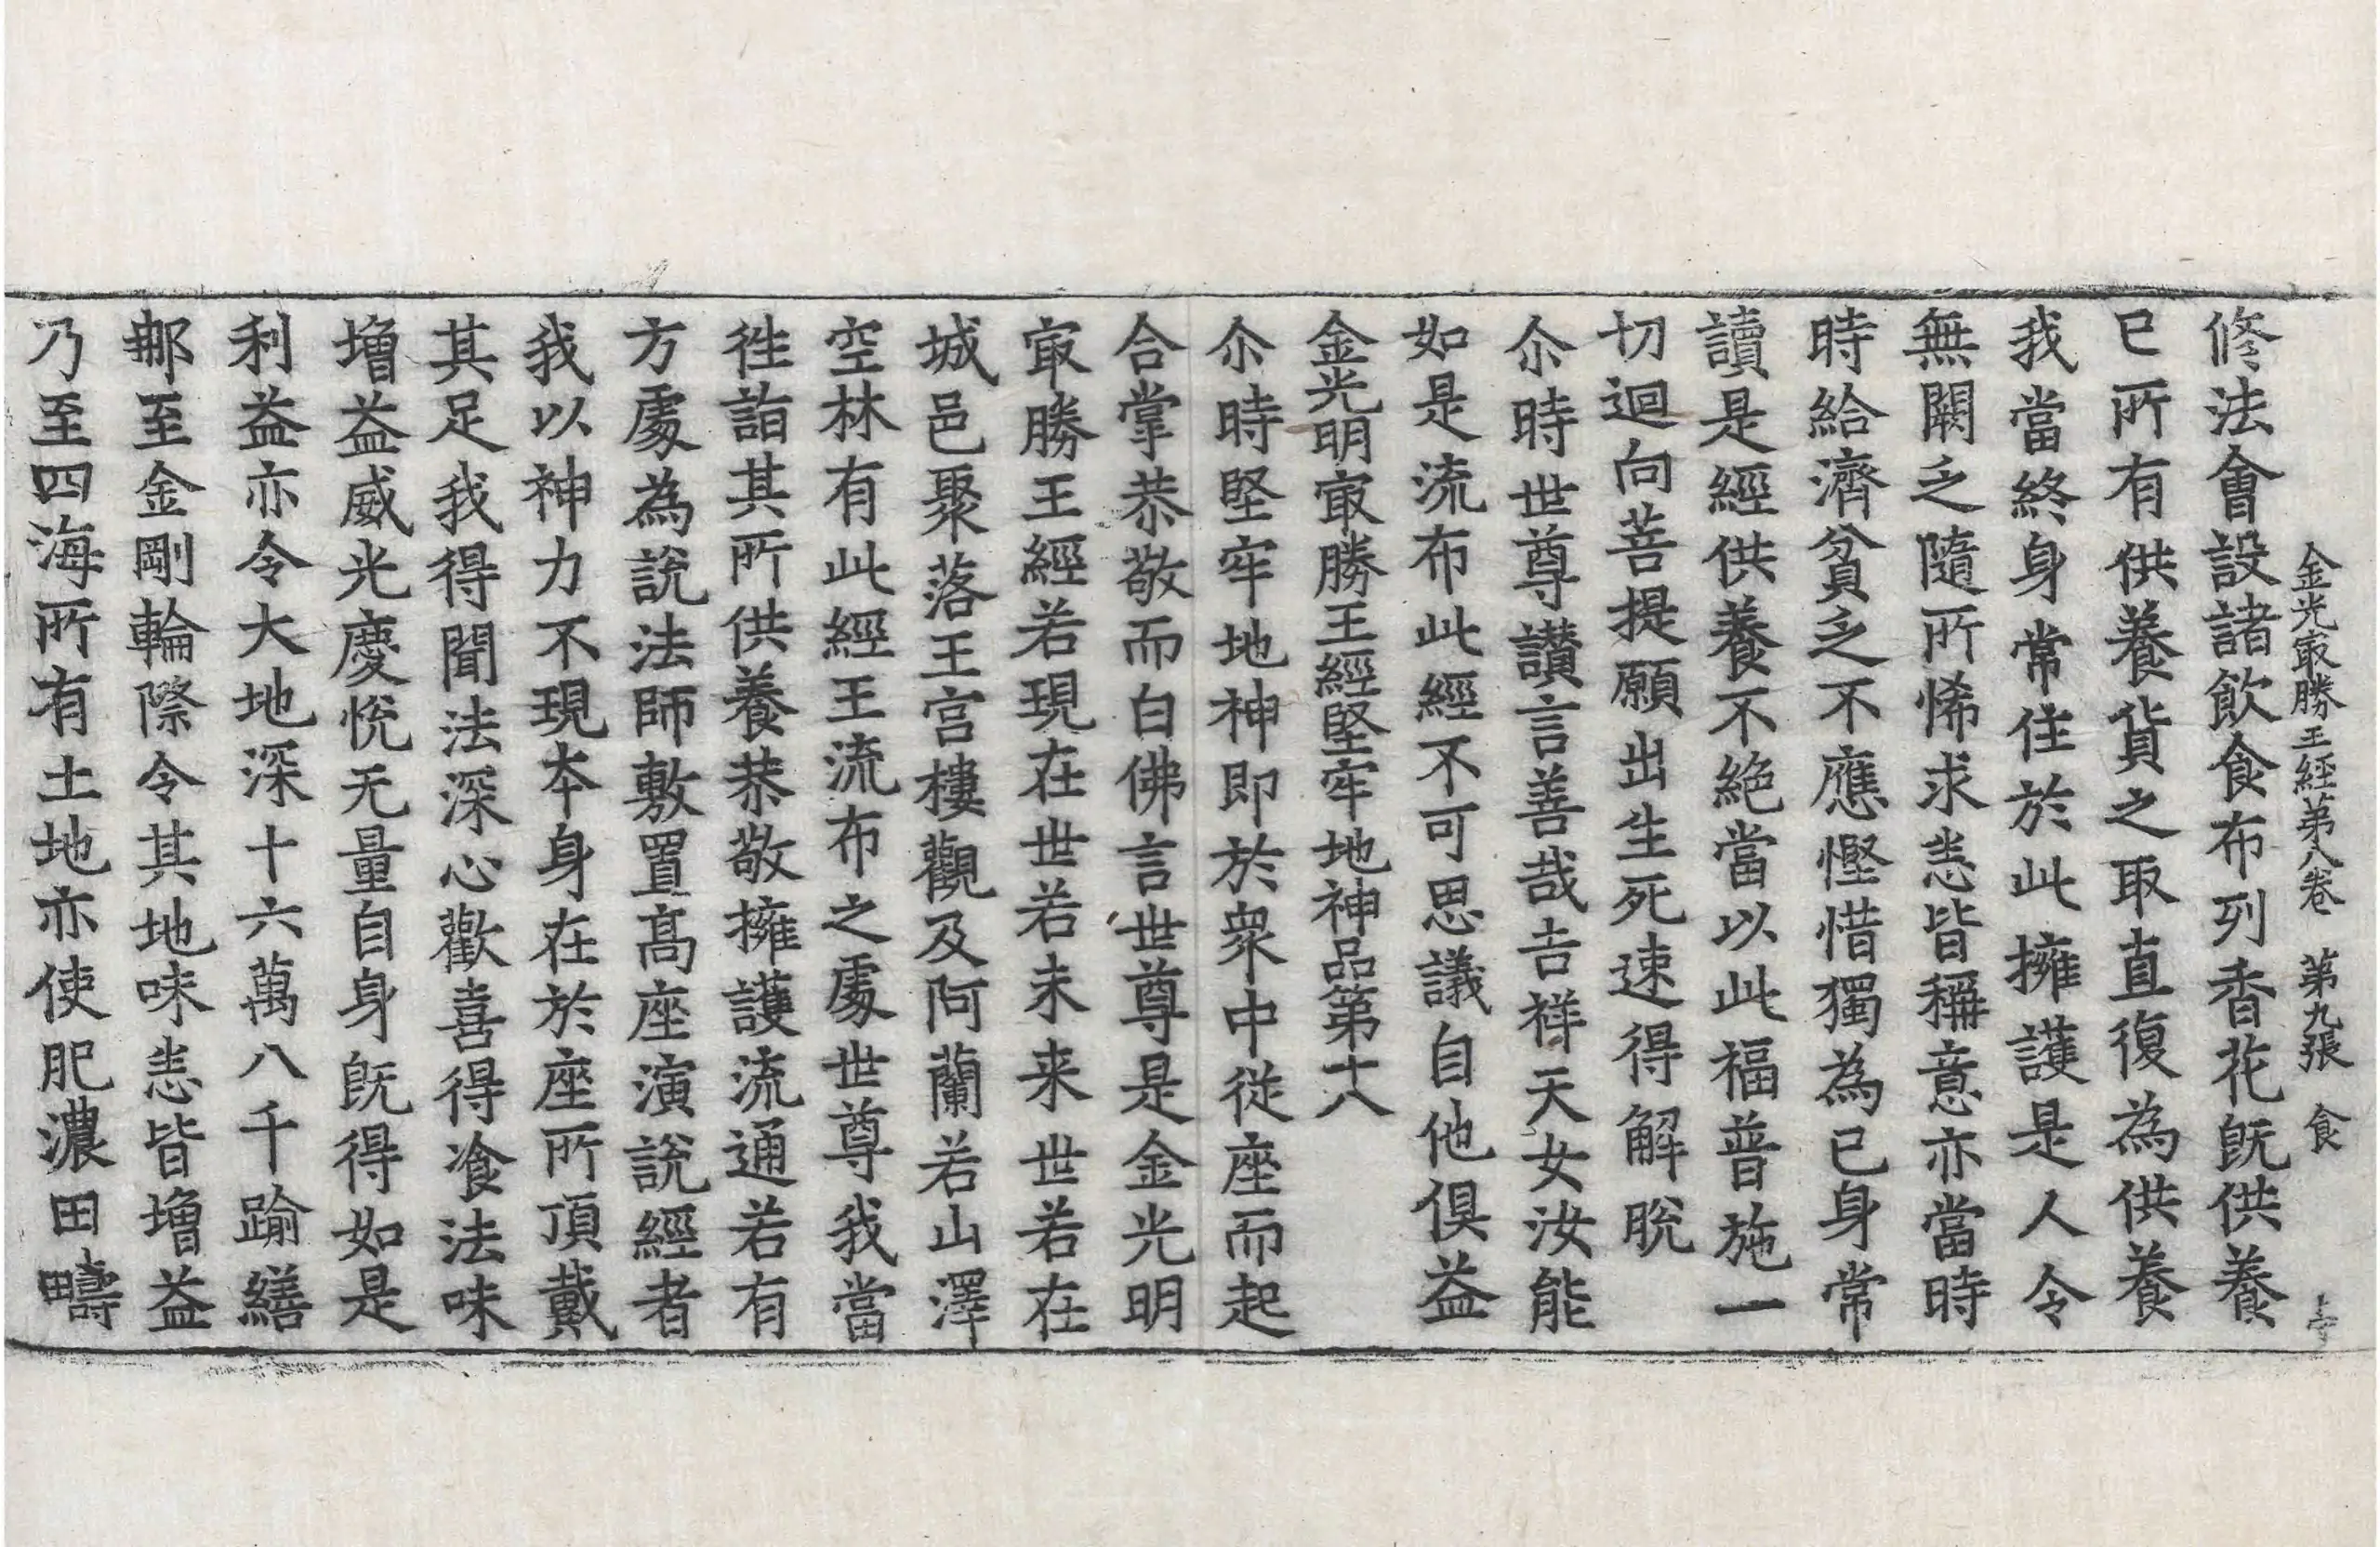 金光㝡勝王經第八卷　第九張　食
修法會設諸飲食布列香花旣供養
已所有供養貨之取直復為供養
我當終身常住於此擁護是人令
無闕乏隨所悕求悉皆稱意亦當時
時給濟貧乏不應慳惜獨為已身常
讀是經供養不絕當以此福普施一
切迴向菩提願出生死速得解脫
尒時世尊讃言善哉吉祥天女汝能
如是流布此經不可思議自他俱益
金光明㝡勝王經堅牢地神品第十八
尒時堅牢地神即於衆中從座而起
合掌恭敬而白佛言世尊是金光明
㝡勝王經若現在世若未来世若在
城邑聚落王宮樓觀及阿蘭若山澤
空林有此經王流布之處世尊我當
徃詣其所供養恭敬擁護流通若有
方處為說法師敷置髙座演說經者
我以神力不現夲身在於座所頂戴
其足我得聞法深心歡喜得飡法味
增益威光慶悅无量自身旣得如是
利益亦令大地深十六萬八千踰繕
那至金剛輪際令其地味悉皆增益
乃至四海所有土地亦使肥濃田疇